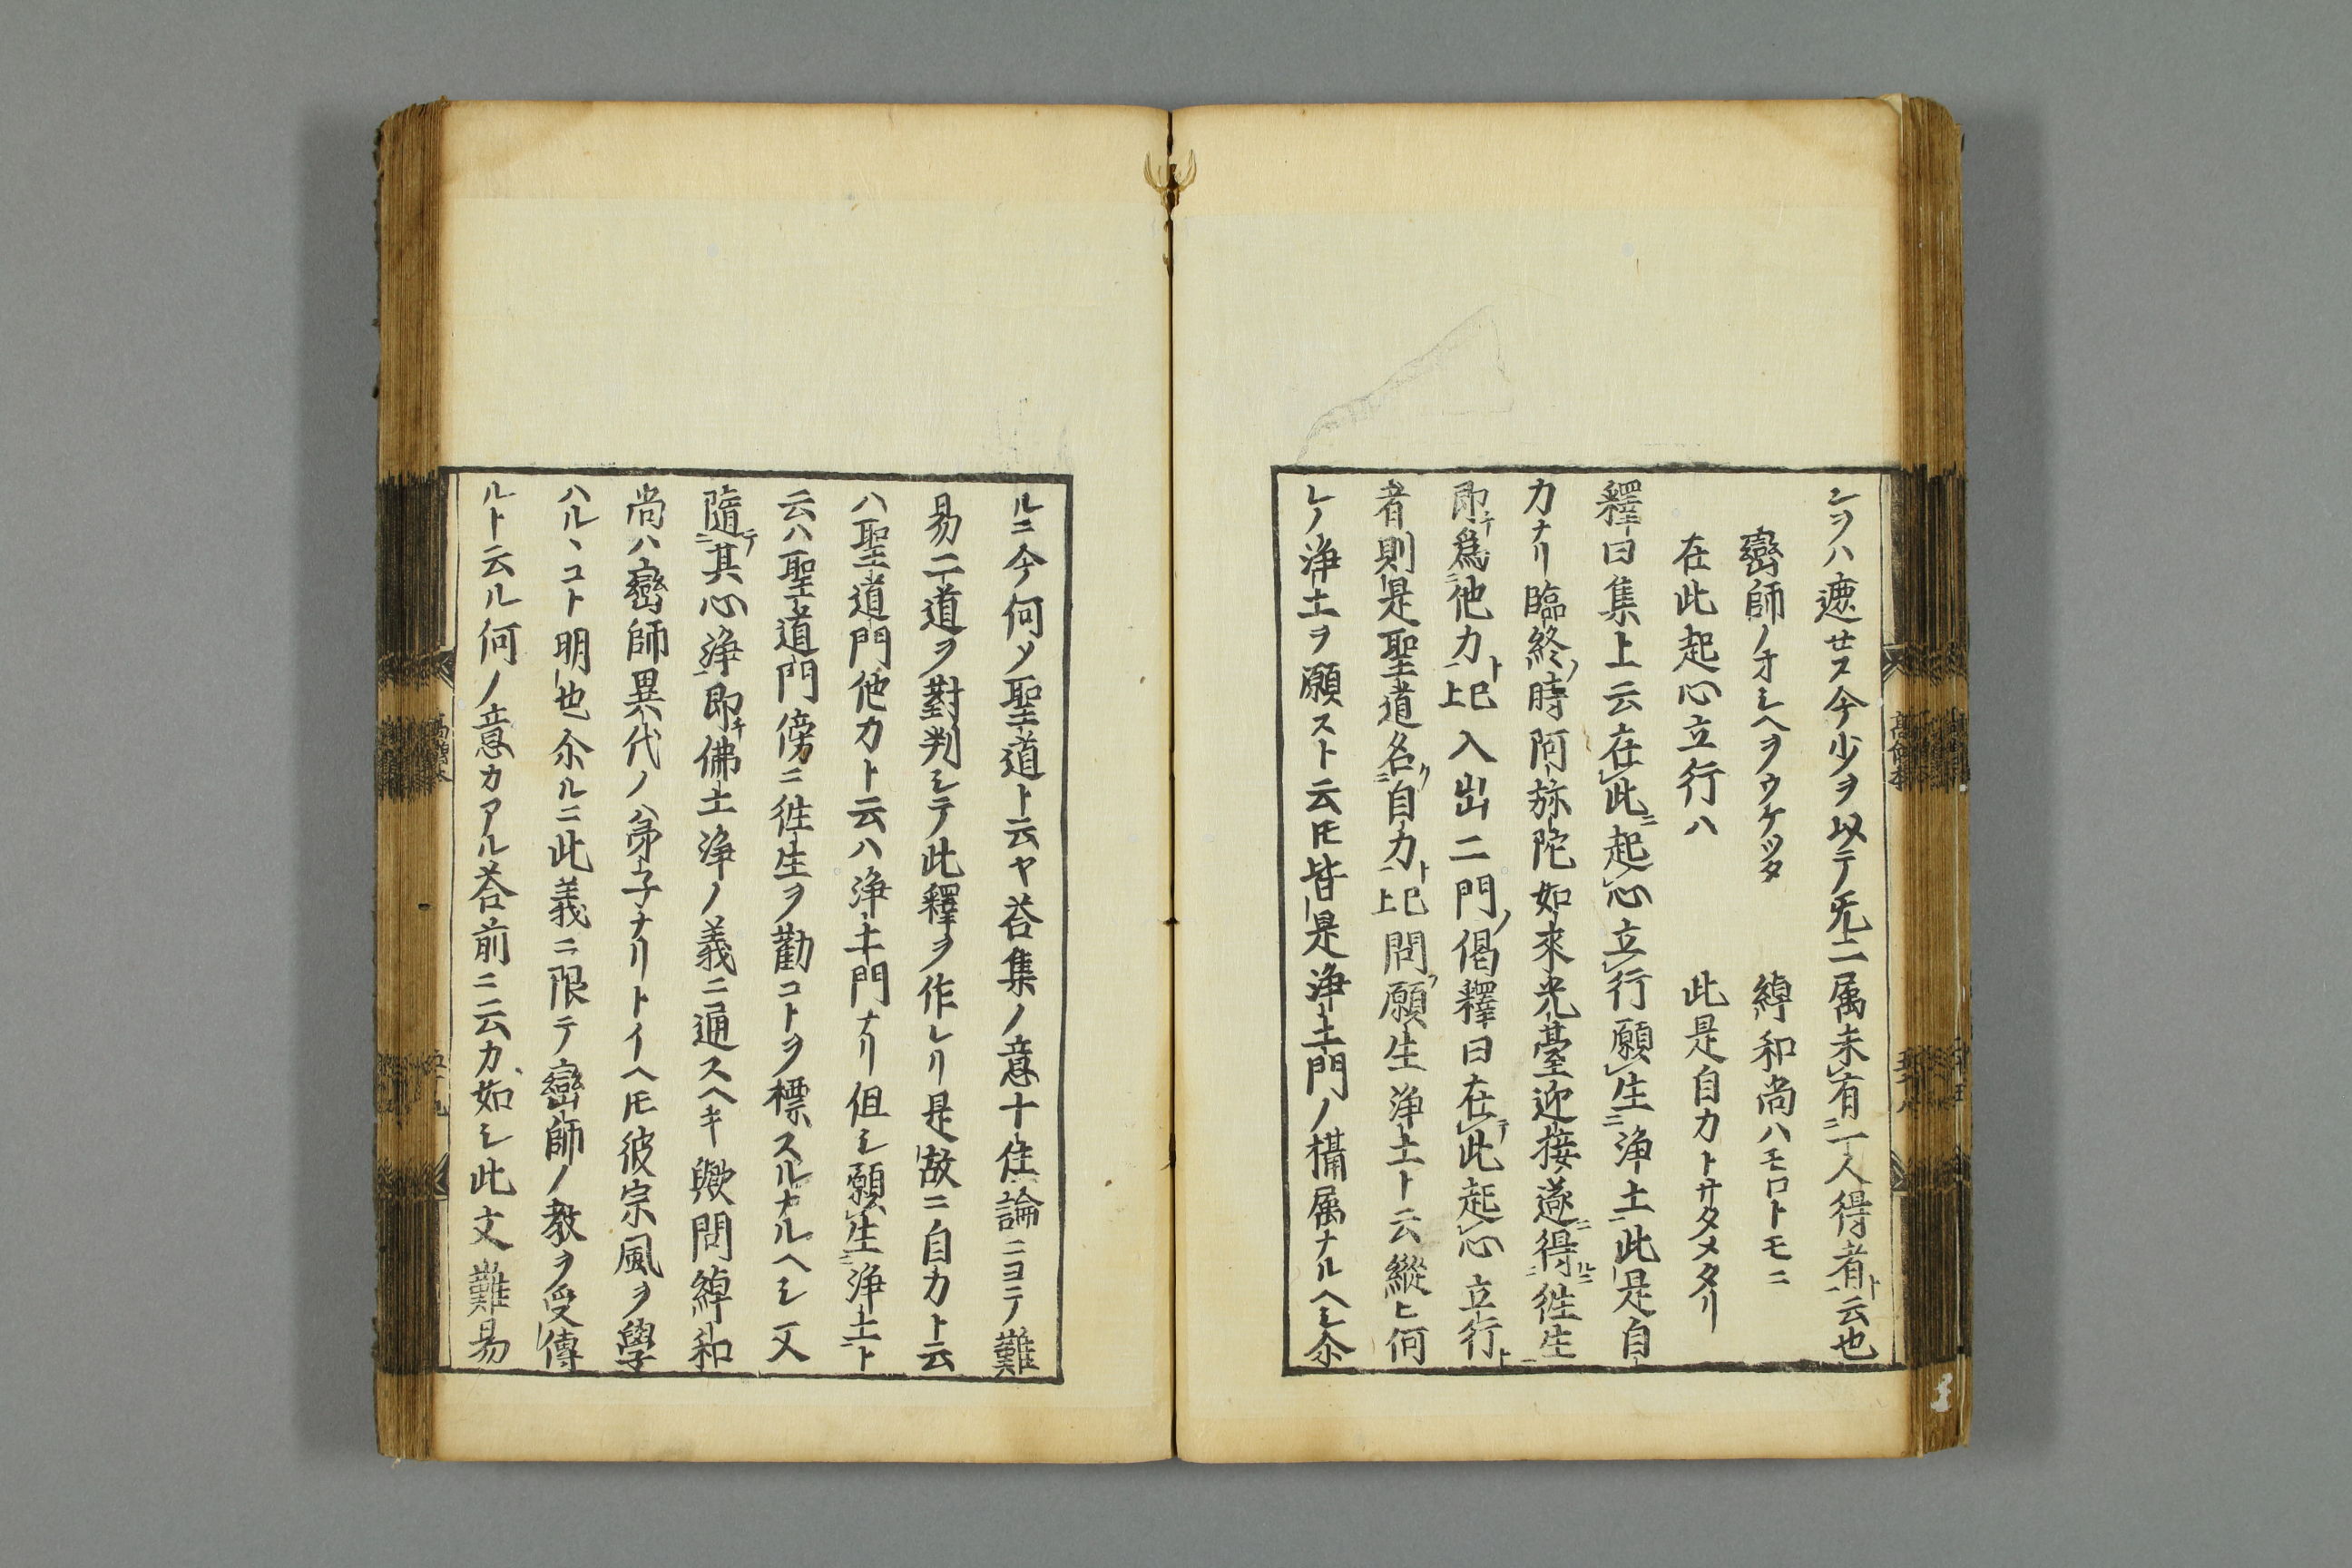 シヲハ遮セス今少ヲ以テ旡ニ属未有一人得者ト云也
巒師ノオシヘヲウケツタ　綽和尚ハモロトモニ
在此起心立行ハ　此是自力トサタメタリ
釋曰集上云在此ニ起心立行願生浄土此是自
力ナリ臨終ノ時阿弥陀如來光臺迎接遂得ルニ徃生
即チ爲他力ト上巳入出二門ノ偈釋曰在テ此起心立行ト
者則是聖道名ク自力ト上巳問願生浄土ト云縱ヒ何
レノ浄土ヲ願スト云𪜈皆是浄土門ノ攝属ナルヘシ尒
ルニ今何ソ聖道ト云ヤ荅集ノ意十住論ニヨテ難
易二道ヲ對判シテ此釋ヲ作レリ是故ニ自力ト云
ハ聖道門他力ト云ハ浄土門ナリ但シ願生浄土ト
云ハ聖道門傍ニ徃生ヲ勸コトヲ標スルナルヘシ又
隨テ其心浄即チ佛土浄ノ義ニ通スヘキ歟問綽和
尚ハ巒師異代ノ弟子ナリトイヘ𪜈彼宗風ヲ學
ハルヽコト明也尒ルニ此義ニ限テ巒師ノ教ヲ受傳
ルト云ル何ノ意カアル荅前ニ云カ如シ此文難易